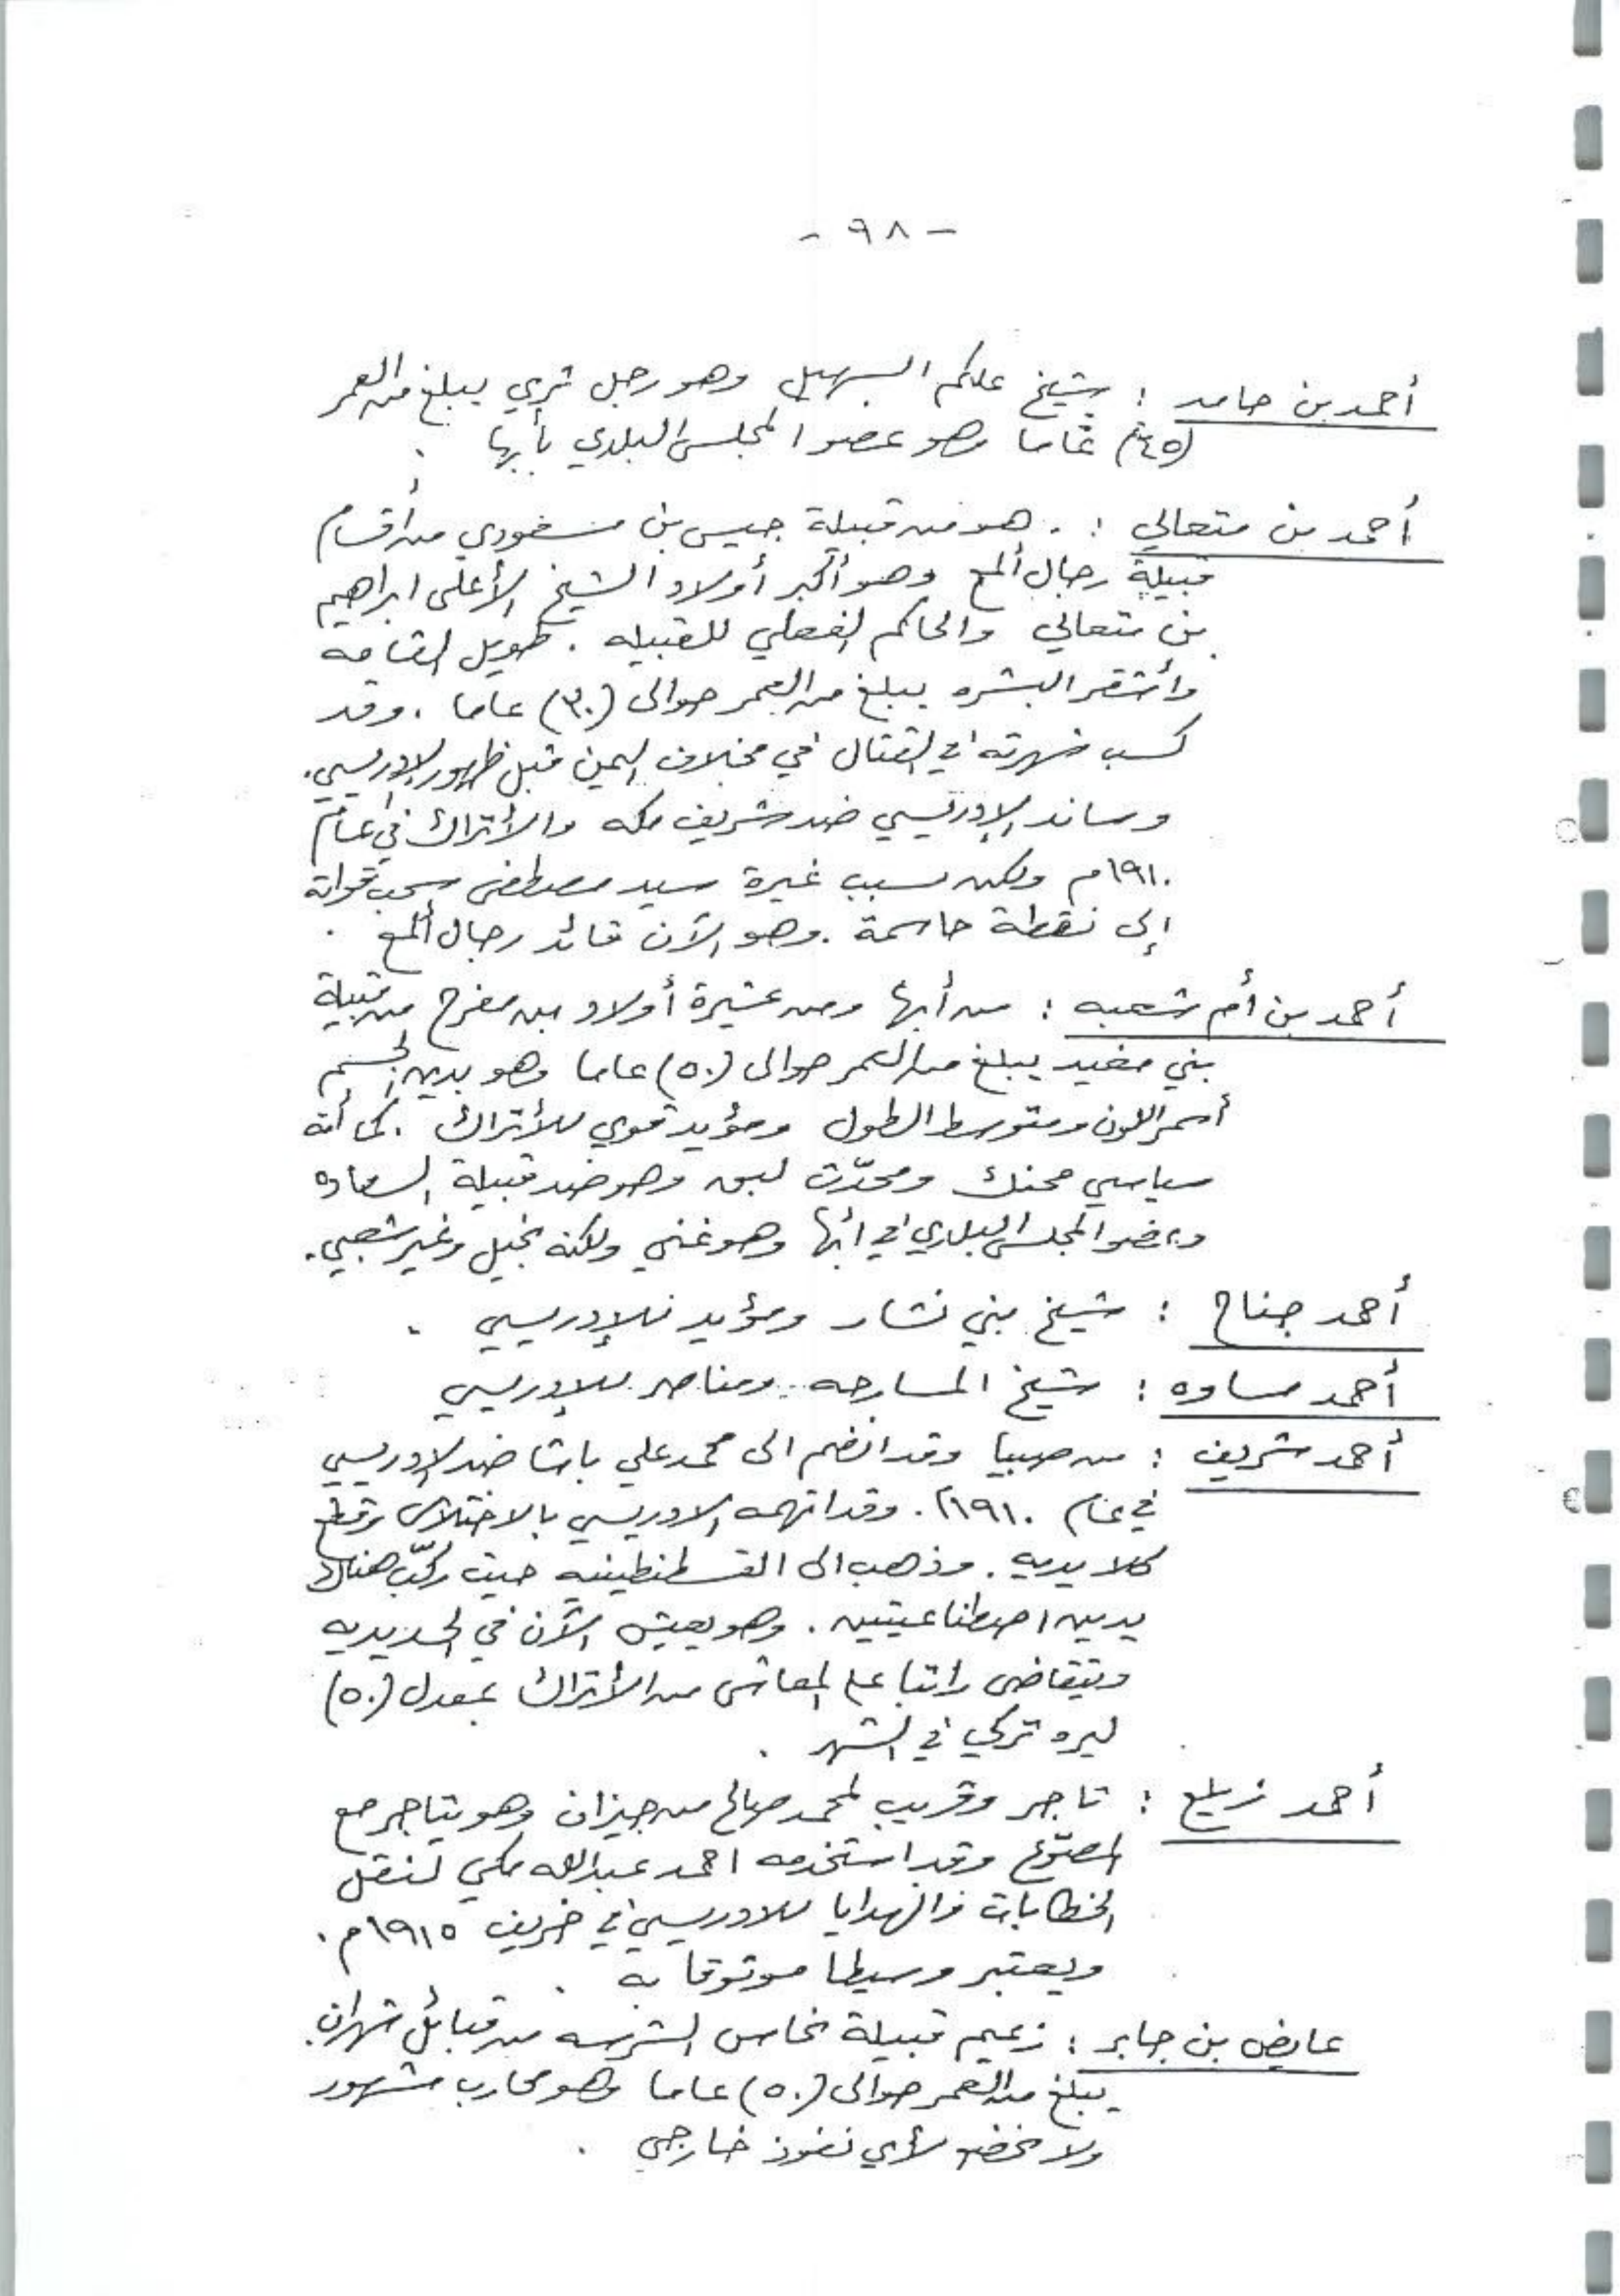 - ٩٨ -
أحمد بن حامد : شيخ علكم السهيل وهو رجل ثري يبلغ من العمر
(٤٥) عاما وهو عضو المجلس البلدي بأبها .
أحمد بن متعالي : . هو من قبيلة جيس بن مسعودي من أقسام
قبيلة رجال ألمع وهو أكبر أولاد الشيخ الأعلى ابراهيم
بن متعالي والحاكم الفعلي للقبيله . طويل القامه
وأشقر البشره يبلغ من العمر حوالى (٣٠) عاما . وقد
كسب شهرته في القتال في مخلاف اليمن قبل ظهور الإدريسي .
وساند الإدريسي ضد شريف مكه والأتراك في عام
١٩١٠م ولكن بسبب غيرة سيد مصطفى سحب قواته
إلى نقطة حاسمة . وهو الآن قائد رجال ألمع .
أحمد بن أم شعبه : من أبها ومن عشيرة أولاد بن مفرح من قبيلة
بني مغيد يبلغ من العمر حوالى (٥٠) عاما وهو بدين الجسم
أسمر اللون ومتوسط الطول ومؤيد قوي للأتراك . كما أنه
سياسي محنك ومحدّث لبق وهو ضد قبيلة السعاده
وعضو المجلس البلدي في ابها وهو غني ولكنه بخيل وغير شعبي .
أحمد جناح : شيخ بني نشار ومؤيد للإدريسي .
أحمد مساوه : شيخ المسارحه ومناصر للإدريسي
أحمد شريف : من صبيا وقد انضم الى محمد علي باشا ضد الإدريسي
في عام ١٩١٠م . وقد اتهمه الادريسي بالاختلاس وقطع
كلا يديه . وذهب الى القسطنطينيه حيث ركّب هناك
يدين اصطناعيتين . وهو يعيش الآن في الحديديه
ويتقاضى راتبا على المعاش من الأتراك بمعدل (٥٠)
ليره تركي في الشهر .
أحمد زيلع : تاجر وقريب لمحمد صالح من جيزان وهو يتاجر مع
المصوّع وقد استخدمه احمد عبدالله مكي لنقل
الخطابات والهدايا للادريسي في خريف ١٩١٥م .
ويعتبر وسيطا موثوقا به .
عايض بن جابر : زعيم قبيلة نحاس الشرسه من قبائل شهران .
يبلغ من العمر حوالى (٥٠) عاما وهو محارب مشهور
ولا يخضع لأي نفوذ خارجي .